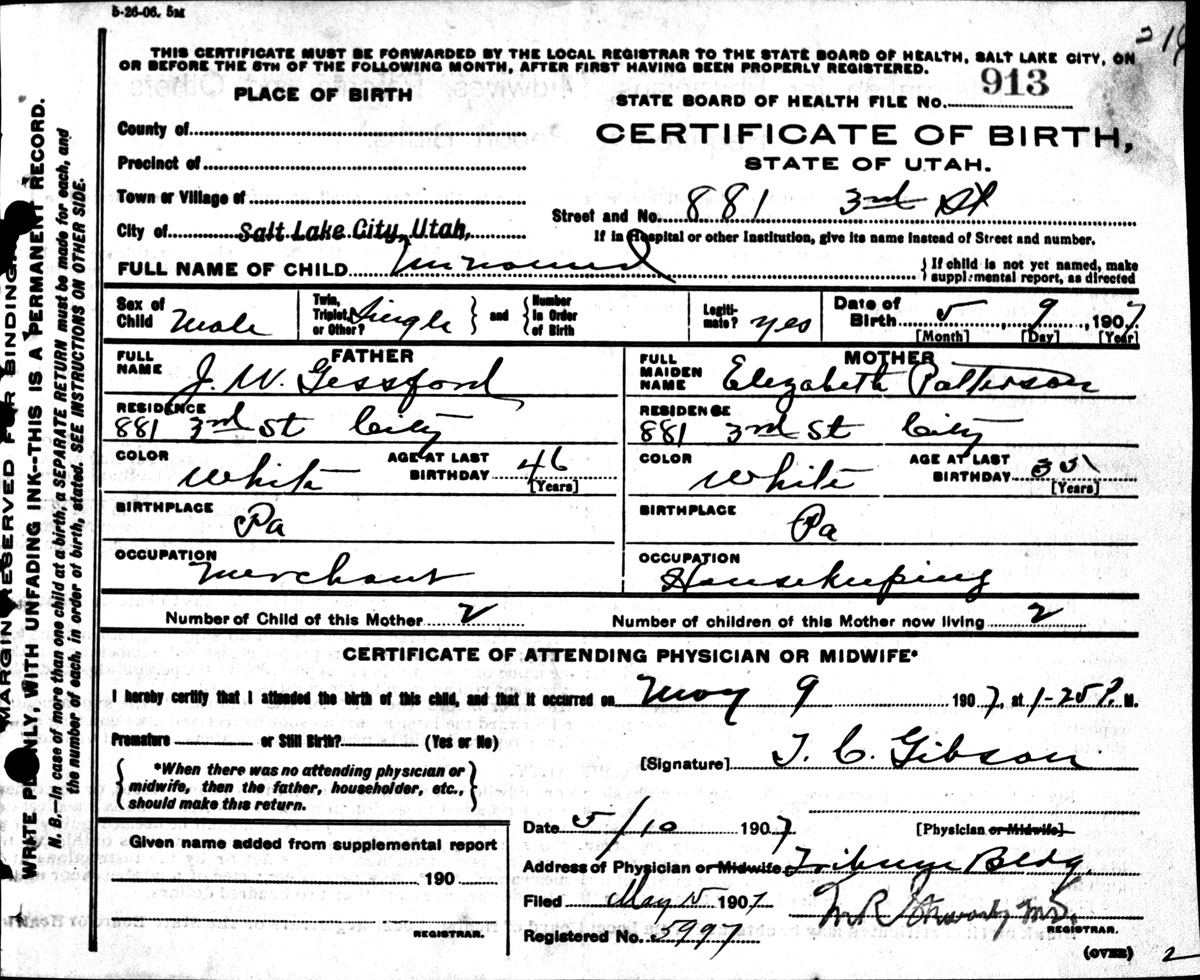 5-26-06. 5M
THIS CERTIFICATE MUST BE FORWARDED BY THE LOCAL REGISTRAR TO THE STATE BOARD OF HEALTH, SALT LAKE CITY, ON
OR BEFORE THE 5TH OF THE FOLLOWING MONTH, AFTER FIRST HAVING BEEN PROPERLY REGISTERED.
PLACE OF BIRTH
STATE BOARD OF HEALTH FILE No. 913
CERTIFICATE OF BIRTH,
STATE OF UTAH.
County of
Precinct of
Town or Village of
City of Salt Lake City, Utah,
Street and No. 881 3rd St
If in Hospital or other Institution, give its name instead of Street and number.
FULL NAME OF CHILD Unnamed
{ If child is not yet named, make
supplemental report, as directed
Sex of Child Male
Twin, Triplet, or Other? Single } and { Number In Order of Birth
Legiti-mate? yes
Date of Birth 5 9, 1907
[Month] [Day] [Year]
FATHER
FULL NAME J. W. Gessford
RESIDENCE
881 3rd St City
COLOR White AGE AT LAST BIRTHDAY 46
[Years]
BIRTHPLACE
Pa
OCCUPATION
Merchant
MOTHER
FULL MAIDEN NAME Elizabeth Patterson
RESIDENCE
881 3rd St City
COLOR White AGE AT LAST BIRTHDAY 35
[Years]
BIRTHPLACE
Pa
OCCUPATION
Housekeeping
Number of Child of this Mother 2 Number of children of this Mother now living 2
CERTIFICATE OF ATTENDING PHYSICIAN OR MIDWIFE*
I hereby certify that I attended the birth of this child, and that it occurred on May 9 1907, at 1-25 P. M.
Premature or Still Birth? (Yes or No)
{ *When there was no attending physician or
midwife, then the father, householder, etc.,
should make this return. }
[Signature] T. C. Gibson
Date 5/10 1907 [Physician or Midwife]
Address of Physician or Midwife Tribune Bldg.
Filed May 15 1907
REGISTRAR.
Registered No. 5997
(OVER)
2
Given name added from supplemental report
190
REGISTRAR.
MARGIN RESERVED FOR BINDING
WRITE PLAINLY, WITH UNFADING INK--THIS IS A PERMANENT RECORD.
N. B.--In case of more than one child at a birth, a SEPARATE RETURN must be made for each, and
the number of each, in order of birth, stated. SEE INSTRUCTIONS ON OTHER SIDE.